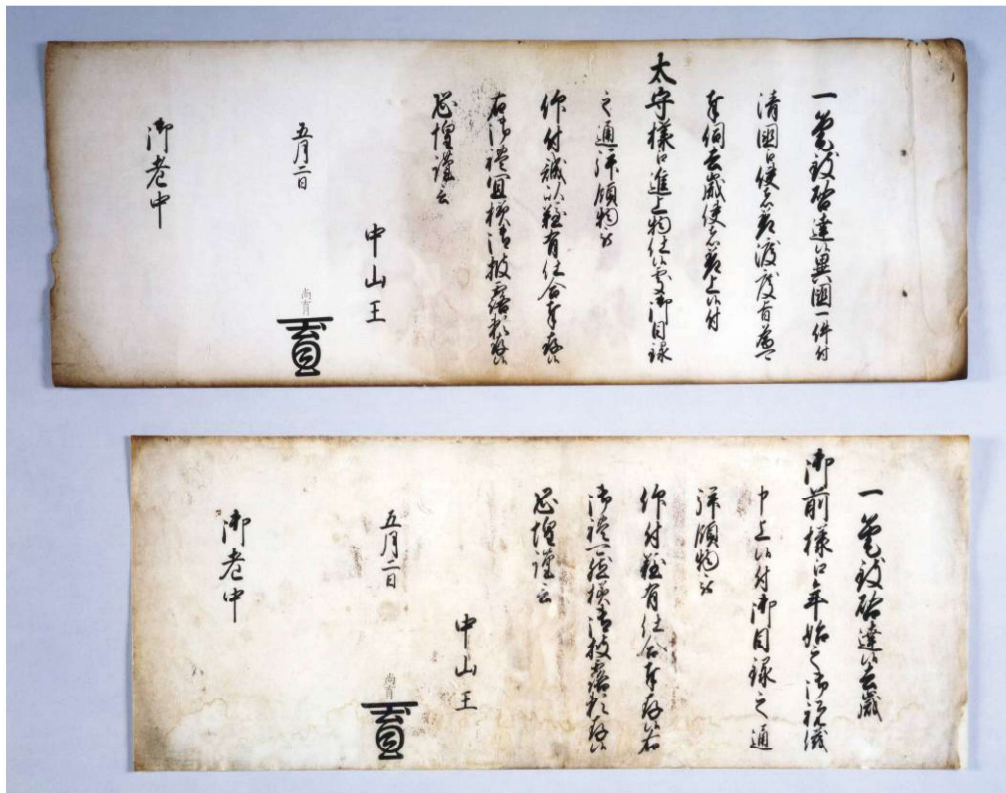 一筆致啓達候異國一件付
清國江使者差渡度旨
奉伺去歳使者差上候付
太守様江進上物仕候處御目録
之通拝領物被
仰付誠以難有仕合奉存候
右御禮宜様御披露頼存候
恐惶謹言
中山王
尚育
五月二日
御老中
一筆致啓達候去歳
御前様江年始之御祝儀
申上候付御目録之通
拝領物被
仰付難有仕合奉存候右
御禮可然様御披露頼存候
恐惶謹言
中山王
尚育
五月二日
御老中